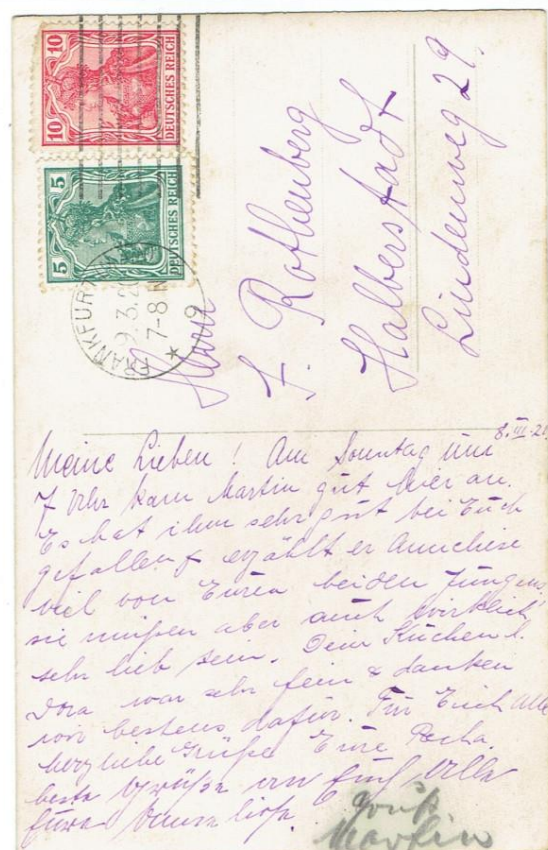 10
10
DEUTSCHES REICH
5
5
DEUTSCHES REICH
FRANKFURT
9.3.20
7-8 N
* 9
Herrn
F. Rothenberg
Halberstadt
Lindenweg 29.
8.III.20
Meine Lieben! Am Sonntag um
7 Uhr kam Martin gut hier an.
Es hat ihm sehr gut bei Euch
gefallen & erzählt er Anneliese
viel von Euren beiden Jungen,
sie müssen aber auch wirklich
sehr lieb sein. Dein Kuchen l.
war sehr fein & danken
wir bestens dafür. Für Euch Alle
herzliche Grüße Eure Recha.
beste Grüße an Euch Alle
Eure
Gruß
Martin